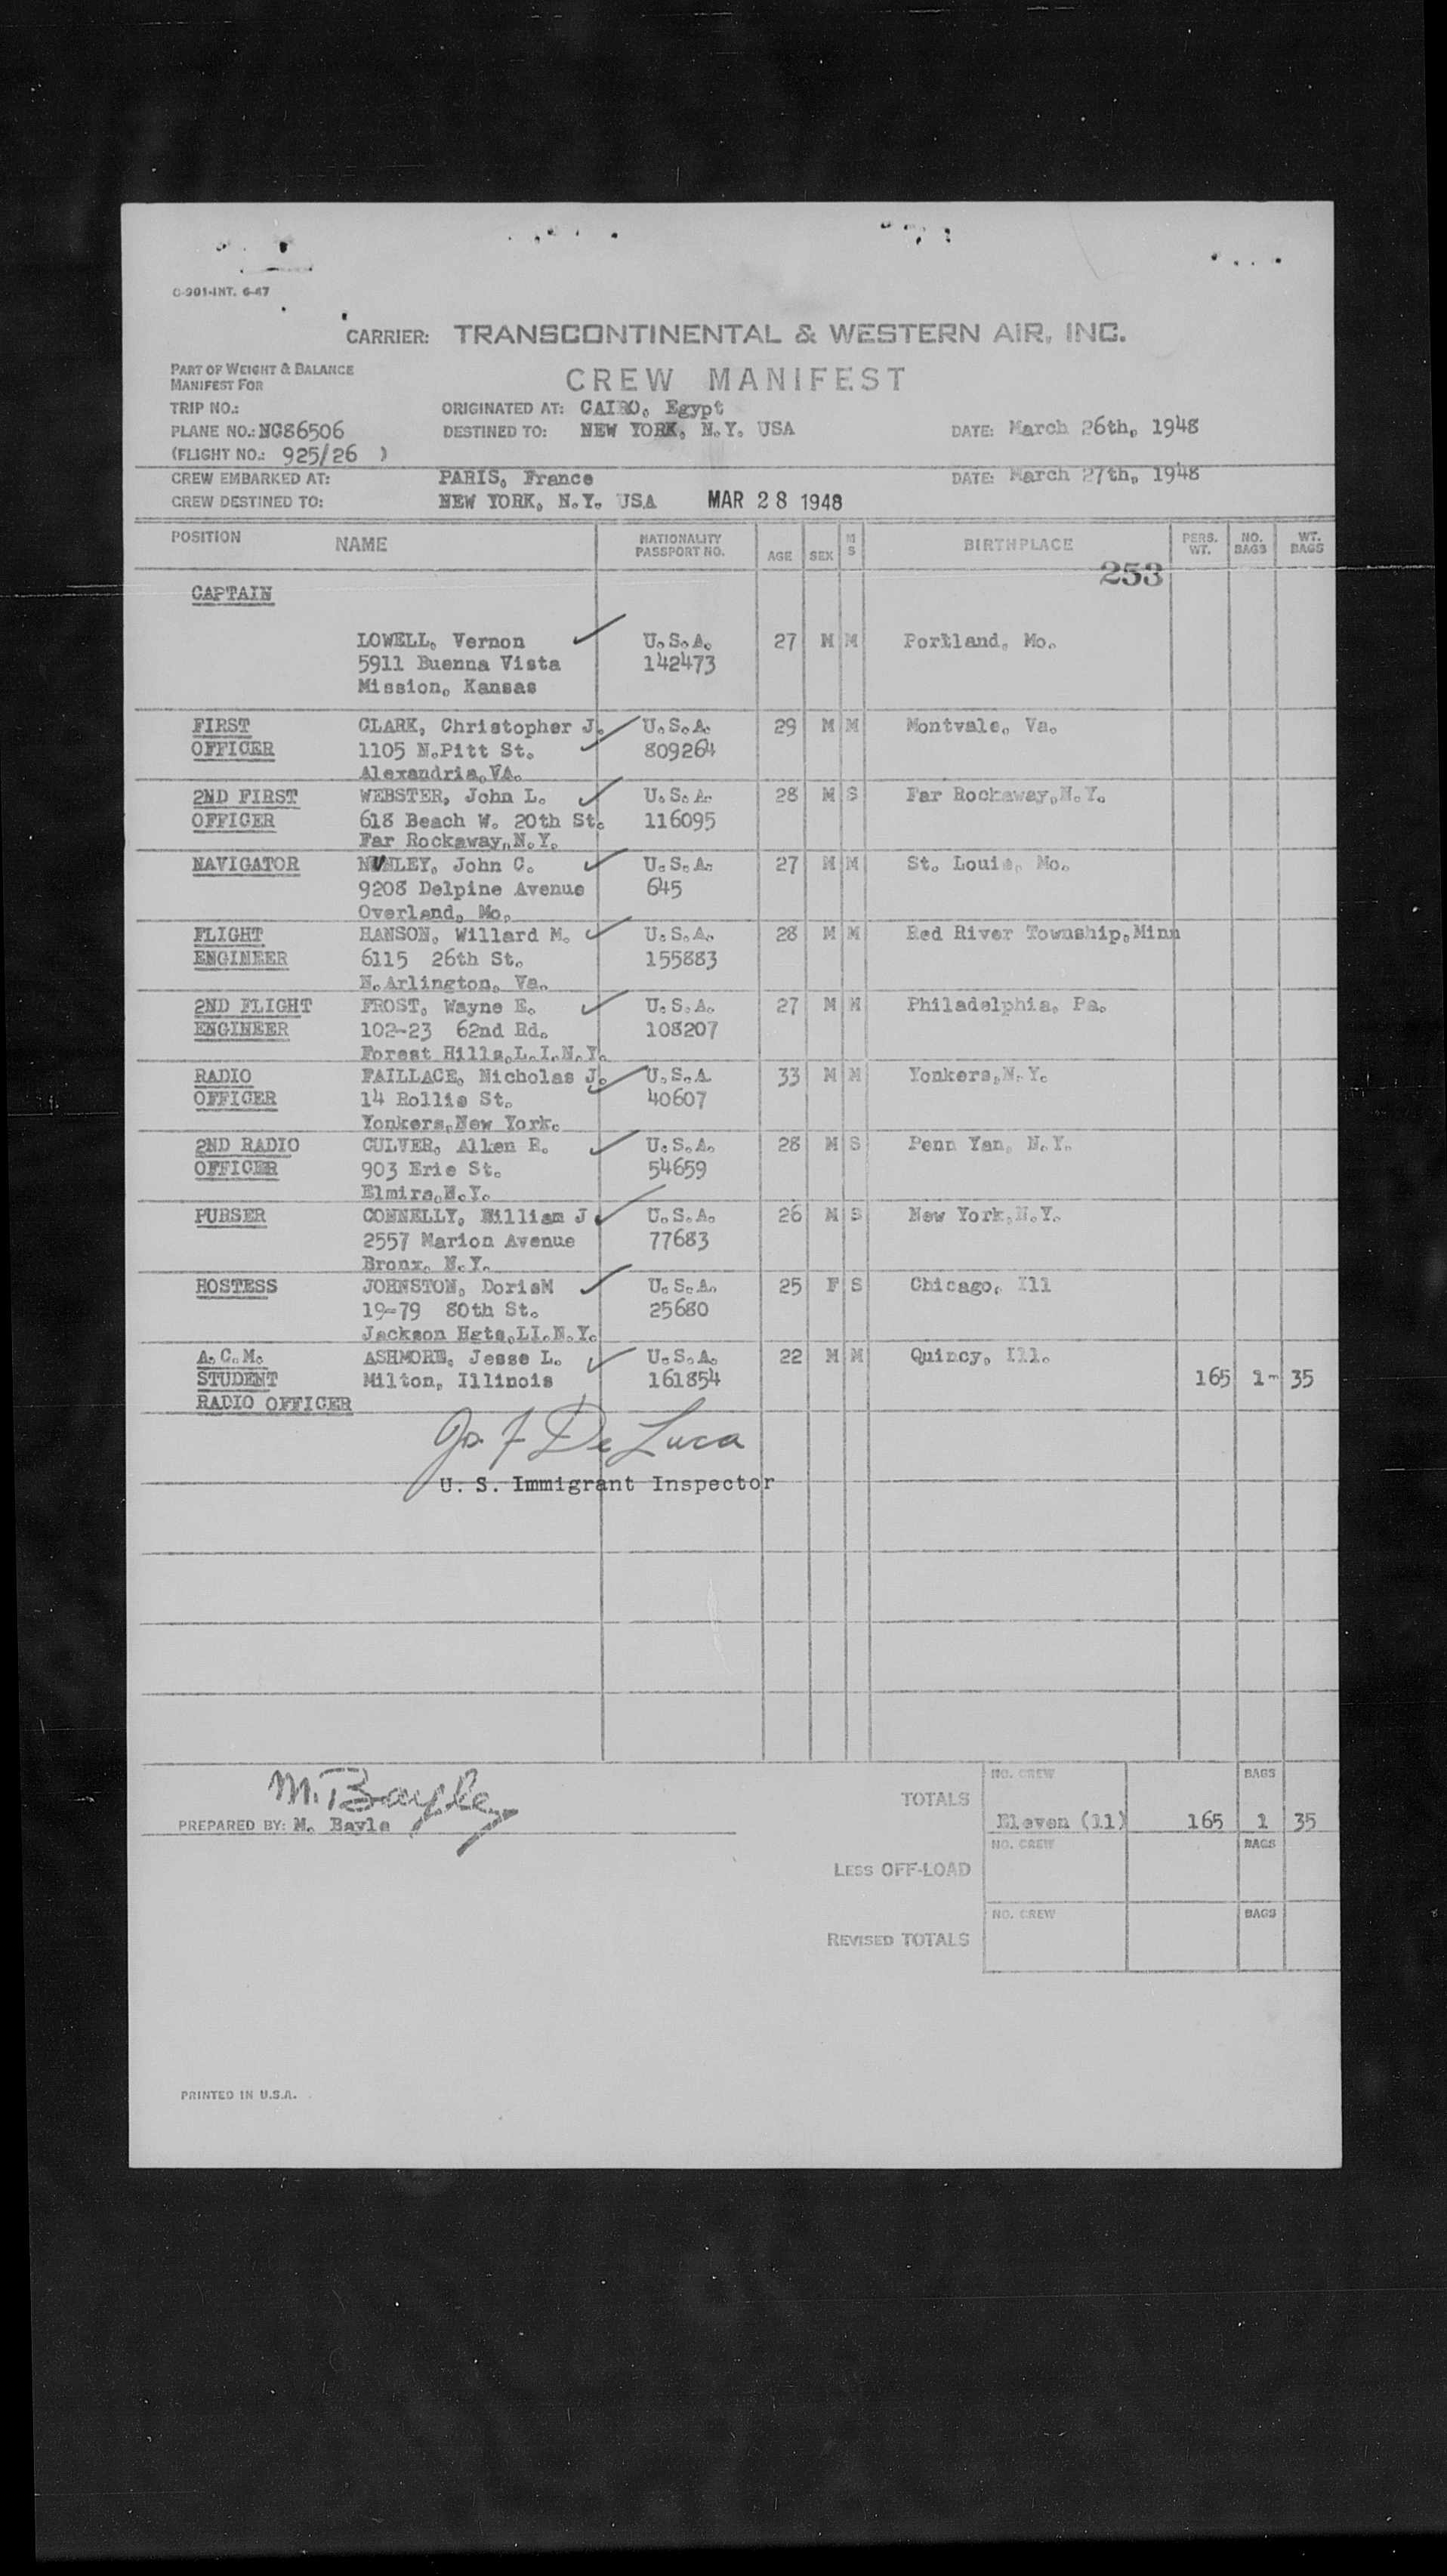 O-901-INT. 6-47
CARRIER: TRANSCONTINENTAL & WESTERN AIR, INC.
PART OF WEIGHT & BALANCE
MANIFEST FOR
CREW MANIFEST
TRIP NO.: ORIGINATED AT: CAIRO, Egypt
PLANE NO.: NC86506 DESTINED TO: NEW YORK, N.Y. USA DATE: March 26th, 1948
(FLIGHT NO.: 925/26 )
CREW EMBARKED AT: PARIS, France DATE: March 27th, 1948
CREW DESTINED TO: NEW YORK, N.Y. USA MAR 28 1948
POSITION NAME NATIONALITY PASSPORT NO. AGE SEX M S BIRTHPLACE PERS. WT. NO. BAGS WT. BAGS
253
CAPTAIN
LOWELL, Vernon U.S.A. 27 M M Portland, Mo.
5911 Buenna Vista 142473
Mission, Kansas
FIRST CLARK, Christopher J. U.S.A. 29 M M Montvale, Va.
OFFICER 1105 N.Pitt St. 809264
Alexandria,VA.
2ND FIRST WEBSTER, John L. U.S.A. 28 M S Far Rockaway,N.Y.
OFFICER 618 Beach W. 20th St. 116095
Far Rockaway,N.Y.
NAVIGATOR NUNLEY, John C. U.S.A. 27 M M St. Louis, Mo.
9208 Delpine Avenue 645
Overland, Mo.
FLIGHT HANSON, Willard M. U.S.A. 28 M M Red River Township,Minn
ENGINEER 6115 26th St. 155883
N.Arlington, Va.
2ND FLIGHT FROST, Wayne E. U.S.A. 27 M M Philadelphia, Pa.
ENGINEER 102-23 62nd Rd. 108207
Forest Hills,L.I.N.Y.
RADIO FAILLACE, Nicholas J. U.S.A. 33 M M Yonkers,N.Y.
OFFICER 14 Rollis St. 40607
Yonkers,New York.
2ND RADIO CULVER, Allen R. U.S.A. 28 M S Penn Yan, N.Y.
OFFICER 903 Erie St. 54659
Elmira,N.Y.
PURSER CONNELLY, William J U.S.A. 26 M S New York,N.Y.
2557 Marion Avenue 77683
Bronx, N.Y.
HOSTESS JOHNSTON, DorisM U.S.A. 25 F S Chicago, Ill
19-79 80th St. 25680
Jackson Hgts,LI.N.Y.
A.C.M. ASHMORE, Jesse L. U.S.A. 22 M M Quincy, Ill.
STUDENT Milton, Illinois 161854 165 1- 35
RADIO OFFICER
Jo. F De Luca
U. S. Immigrant Inspector
M. Bayle
PREPARED BY: M. Bayle
NO. CREW BAGS
TOTALS
Eleven (11) 165 1 35
NO. CREW BAGS
LESS OFF-LOAD
NO. CREW BAGS
REVISED TOTALS
PRINTED IN U.S.A.